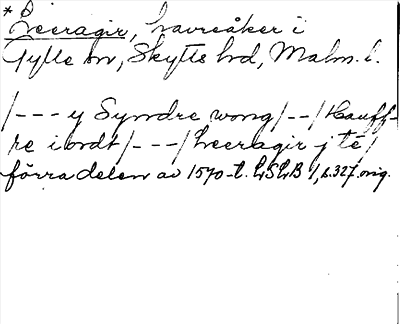 * Leeragir, havreåker i
Gylle sn, Skytts hd, Malm. l.
/--- y Syndre wong /--/ Hauff-
re i ordt /---/ Leeragir j té /
förra delen av 1570-t. LSLB 1, s. 327. orig.